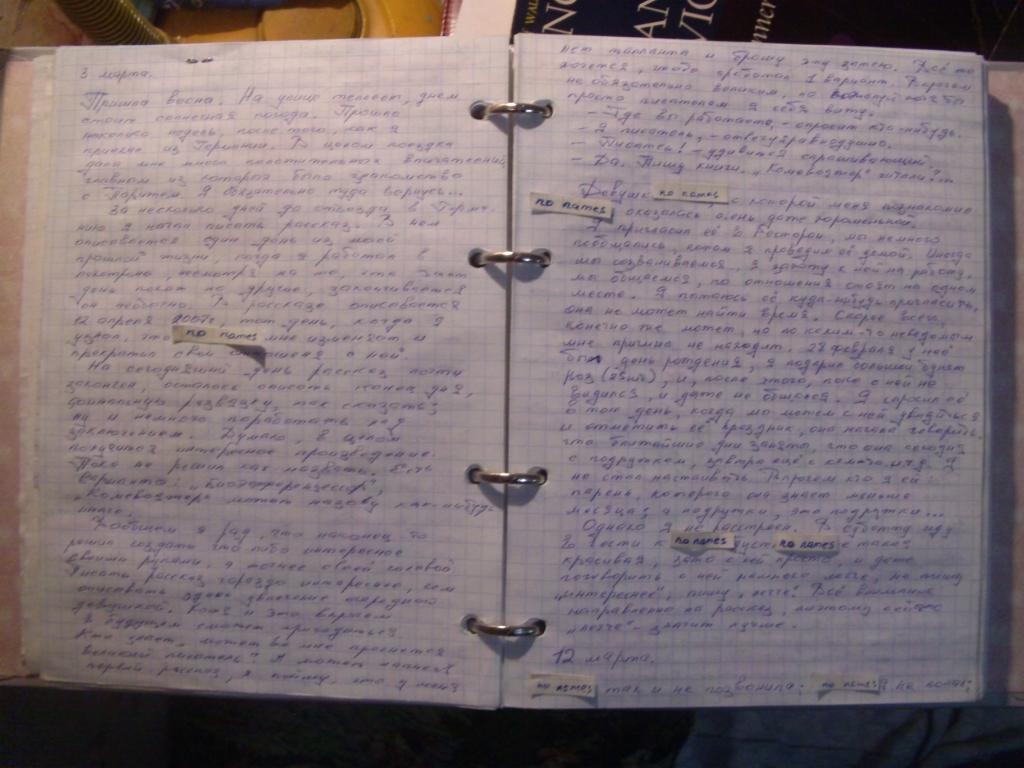 WAL
NG
AN
VIC
3 марта.
Пришла весна. На улице теплеет, днем
стоит солнечная погода. Прошло
несколько недель, после того, как я
приехал из Германии. В целом поездка
дала мне много положительных впечатлений,
главным из которых было знакомство
с Я обязательно туда вернусь...
За несколько дней до отъезда в Герма-
нию я начал писать рассказ. В нем
описывается один день из моей
прошлой жизни, когда я работал в
несмотря на то, что этот
день похож на другие, заканчивается
он необычно. В рассказе описывается
12 апреля 2007г, тот день, когда я
узнал, что no names мне изменяет и
прекратил свои отношения с ней.
На сегодняшний день рассказ почти
закончен, осталось описать конец дня,
финальную развязку, так сказать,
ну и немного поработать над
заключением. Думаю, в целом
получится интересное произведение.
Пока не решил как назвать. Есть
варианты:
"Комевояжер" может назову как-нибудь
иначе.
В общем я рад, что наконец-то
решил создать что-либо интересное
своими руками, а точнее своей головой
Писать рассказ гораздо интереснее, чем
описывать своё увлечение очередной
девушкой. Хотя и это вполне
в будущем сможет пригодиться.
Кто знает, может во мне проснется
великий писатель? А может начнется
первый рассказ, я пойму, что у меня
нет таланта и брошу эту затею. Всё-то
хочется, чтобы сработал 1 вариант. Впрочем
не обязательно великим, но
просто писателем я себя вижу.
- Где вы работаете, - спросит кто-нибудь.
- Я писатель, - отвечу равнодушно.
- Писатель! - удивится спрашивающий.
- Да. Пишу книги. "Комевояжер" читали?...
Девушк no names, с которой меня познакомил
no names оказалась очень даже нормальной.
Я пригласил её в ресторан, мы немного
пообщались, потом я проводил её домой. Иногда
мы созваниваемся, я захожу к ней на работу,
мы общаемся, но отношения стоят на одном
месте. Я пытаюсь её куда-нибудь пригласить,
она не может найти время. Скорее всего,
конечно же может, но по каким-то неведомым
мне причинам не находит. 28 февраля у неё
был день рождения, я подарил большой букет
роз (25шт), и, после этого, пока с ней не
виделся, и даже не общался. Я спросил её
о том дне, когда мы можем с ней увидеться
и отметить её праздник, она начала говорить,
что ближайшие дни занята, что она сегодня
с подружкам, завтра ещё с кем-то, и т.д. Я
не стал настаивать. Впрочем кто я ей:
парень, которого она знает меньше
месяца, а подружки, это подружки...
Однако я не расстроен. В субботу иду
в гости к no names пусть no names не такая
красивая, зато с ней просто, и даже
поговорить с ней намного легче, не пишу
интереснее, пишу, легче. Всё внимание
направлено на рассказ, поэтому сейчас
"легче" - значит лучше.
12 марта.
no names так и не позвонила. no names